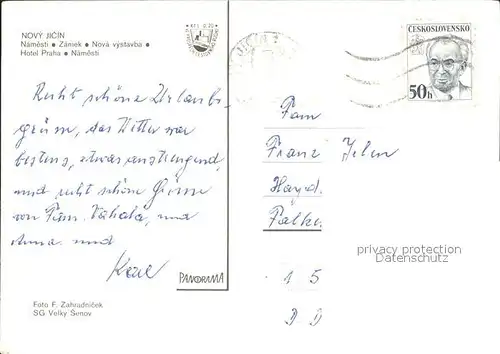 NOVÝ JIČÍN
Náměstí • Zámek • Nová výstavba •
Hotel Praha • Náměstí
Recht schöne Urlaubs-
grüße, das Wetter war
bestens, etwas anstrengend,
und recht schöne Grüsse
von Fam. und
Anna und
Karl
PANORAMA
Foto F. Zahradníček
SG Velký Šenov
ČESKOSLOVENSKO
50h
Fam
Franz
Hayd
privacy protection
Datenschutz
1 5
D D